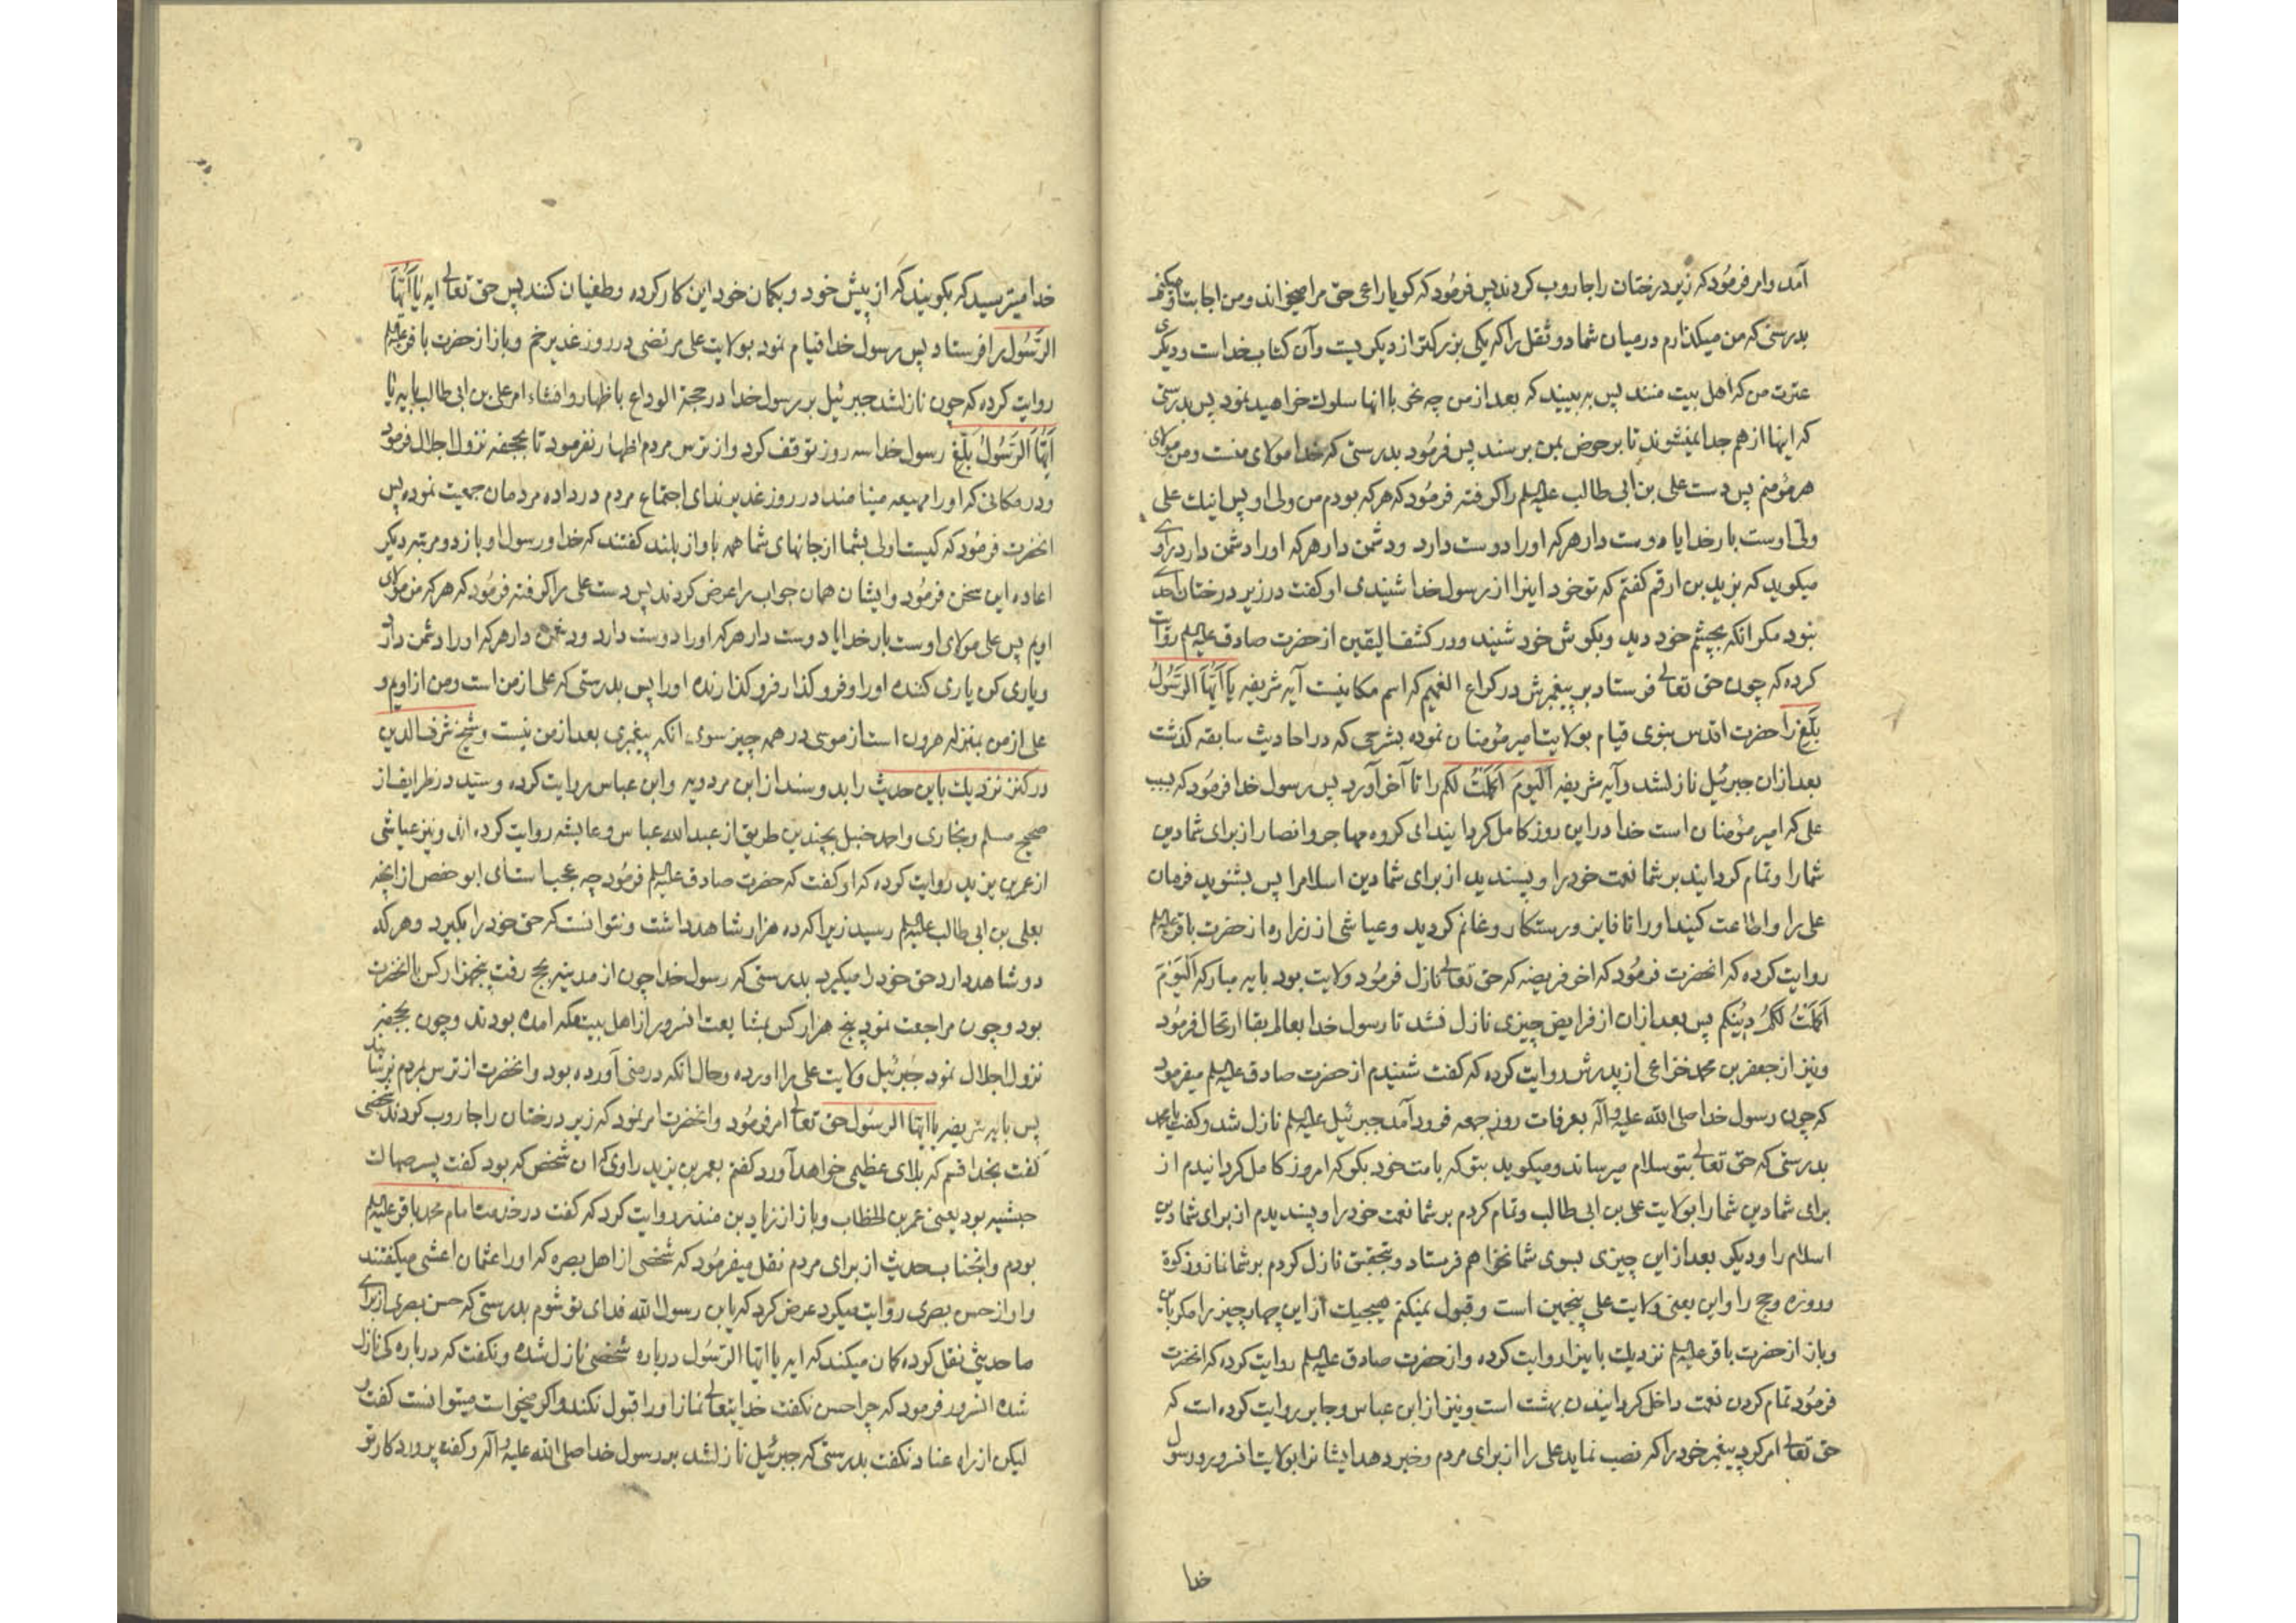 آمد وامر فرمود که زیر درختان را جاروب کردند پس فرمود که کویا راعی حق مرا میخواند ومن اجابت او میکنم
بدرستی که من میکذارم درمیان شما دو ثقل را که یکی بزرکتر از دیکریست وآن کتاب خداست ودیکری
عترت من که اهل بیت منند پس به بینید که بعد از من چه نحو باانها سلوک خواهید نمود پس بدرستی
که اینها از هم جدا نمیشوند تا بر حوض بمن برسند پس فرمود بدرستی که خدا مولای منست ومن مولای
هر مؤمنم پس دست علی بن ابی طالب علیه السلم را کرفته فرمود که هرکه بودم من ولی او پس اینک علی
ولی اوست بار خدایا دوست دار هرکه اورا دوست دارد ودشمن دار هرکه اورا دشمن دارد راوی
میکوید که بزید بن ارقم کفتم که تو خود اینرا از رسول خدا شنیدی او کفت در زیر درختان احدی
نبود مکر انکه بچشم خود دید وبکوش خود شنید ودر کشف الیقین از حضرت صادق علیه السلم روایت
کرده که چون حق تعالی فرستاد بر پیغمبرش در کراع الغمیم که اسم مکانیست آیه شریفه یا اَیُّهَا الرَّسُولُ
بَلِّغ را حضرت اقدس نبوی قیام بولایت امیرمؤمنان نموده بشرحی که در احادیث سابقه کذشت
بعد ازان جبرئیل نازلشد وآیه شریفه اَلیَومَ اَکمَلتُ لَکُم را تا آخر آورد پس رسول خدا فرمود که بسبب
علی که امیر مؤمنان است خدا دراین روز کامل کردانید ای کروه مهاجر وانصار از برای شما دین
شمارا وتمام کردانید بر شما نعمت خودرا وپسندید از برای شما دین اسلام را پس بشنوید فرمان
علی را واطاعت کنید اورا تا فایز ورستکار وغانم کردید وعیاشی از زراره از حضرت باقر علیه السلم
روایت کرده که انحضرت فرمود که اخر فریضه که حق تعالی نازل فرمود ولایت بود بایه مبارکه اَلیَومَ
اَکمَلتُ لَکُم دِینَکُم پس بعد ازان از فرایض چیزی نازل نشد تا رسول خدا بعالم بقا ارتحال فرمود
ونیز از جعفر بن محمد خزاعی از پدرش روایت کرده که کفت شنیدم از حضرت صادق علیه السلم میفرمود
که چون رسول خدا صلی الله علیه وآله بعرفات روز جمعه فرود آمد جبرئیل علیه السلم نازل شد وکفت یا محمد
بدرستی که حق تعالی بتو سلام میرساند ومیکوید بتو که بامت خود بکو که امروز کامل کردانیدم از
برای شما دین شمارا بولایت علی بن ابی طالب وتمام کردم بر شما نعمت خودرا وپسندیدم از برای شما دین
اسلام را ودیکر بعد از این چیزی بسوی شما نخواهم فرستاد وبتحقیق نازل کردم بر شما نماز وزکوة
وروزه وحج را واین یعنی ولایت علی پنجمین است وقبول نمیکنم هیچیک از این چهار چیز را مکر باین
وباز از حضرت باقر علیه السلم نزدیک باینرا روایت کرده واز حضرت صادق علیه السلم روایت کرده که انحضرت
فرمود تمام کردن نعمت داخل کردانیدن بهشت است ونیز از ابن عباس وجابر روایت کرده است که
حق تعالی امر کرد پیغمبر خودرا که نصب نماید علی را از برای مردم وخبر دهد ایشانرا بولایت انسرور ورسول
خدا
خدا میترسید که بکویند که از پیش خود وبکمان خود این کار کرده وطغیان کنند پس حق تعالی ایه یا اَیُّهَا
الرَّسُول را فرستاد پس رسول خدا قیام نمود بولایت علی مرتضی در روز غدیر خم وباز از حضرت باقر علیه السلم
روایت کرده که چون نازلشد جبرئیل بر رسول خدا در حجة الوداع باظهار وافشاء امر علی بن ابی طالب بایه یا
اَیُّهَا الرَّسُولُ بَلِّغ رسول خدا سه روز توقف کرد واز ترس مردم اظهار نفرمود تا بجحفه نزول اجلال فرمود
ودر مکانی که اورا مهیعه مینامند در روز غدیر ندای اجتماع مردم درداده مردمان جمعیت نموده پس
انحضرت فرمود که کیست اولی بشما از جانهای شما همه باواز بلند کفتند که خدا ورسول او باز دو مرتبه دیکر
اعاده این سخن فرمود وایشان همان جواب را عرض کردند پس دست علی را کرفته فرمود که هرکه من مولای
اویم پس علی مولای اوست بار خدایا دوست دار هرکه اورا دوست دارد ودشمن دار هرکه اورا دشمن دارد
ویاری کن یاری کننده اورا وفرو کذار فرو کذارنده اورا پس بدرستی که علی از من است ومن از اویم و
علی از من بمنزله هرون است از موسی در همه چیز سوی انکه پیغمبری بعد از من نیست وشیخ شرف الدین
در کنز نزدیک باین حدیث را بدو سند از ابن مردویه وابن عباس روایت کرده وسید در طرایف از
صحیح مسلم وبخاری واحمد حنبل بچندین طریق از عبد الله عباس وعایشه روایت کرده اند ونیز عیاشی
از عمر بن یزید روایت کرده که او کفت که حضرت صادق علیه السلم فرمود چه عجب است ای ابو حفص از انچه
بعلی بن ابی طالب علیه السلم رسید زیرا که ده هزار شاهد داشت ونتوانست که حق خودرا بکیرد وهرکه
دو شاهد دارد حق خودرا میکیرد بدرستی که رسول خدا چون از مدینه بحج رفت پنجهزار کس باانحضرت
بود وچون مراجعت نمود پنج هزار کس بمشایعت انسرور از اهل بیت مکه امده بودند وچون بجحفه
نزول اجلال نمود جبرئیل ولایت علی را اورده وحال انکه در منی آورده بود وانحضرت از ترس مردم نرسانید
پس بایه شریفه یا ایها الرسول حق تعالی امر فرمود وانحضرت امر نمود که زیر درختان را جاروب کردند شخصی
کفت بخدا قسم که بلای عظیمی خواهد آورد کفتم بعمر بن یزید راوی که ان شخص که بود کفت پسر صهاک
حبشیه بود یعنی عمر بن الخطاب وباز از زیاد بن منذر روایت کرد که کفت در خدمت امام محمد باقر علیه السلم
بودم وانجناب حدیث از برای مردم نقل میفرمود که شخصی از اهل بصره که اورا عثمان اعشی میکفتند
واو از حسن بصری روایت میکرد عرض کرد که یابن رسول الله فدای تو شوم بدرستی که حسن بصری از برای
ما حدیثی نقل کرده کمان میکند که ایه یا ایها الرسول درباره شخصی نازل شده ونکفت که درباره کی نازل
شده انسرور فرمود که چرا حسن نکفت خدایتعالی نماز اورا قبول نکند واکر میخواست میتوانست کفت و
لیکن از راه عناد نکفت بدرستی که جبرئیل نازلشد بر رسول خدا صلی الله علیه وآله وکفت پروردکار تو